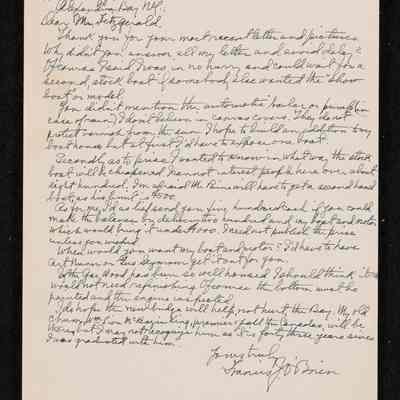 Alexandria Bay N.Y.
Dear Mr. Fitzgerald
Thank you for your most recent letter and pictures
Why didn't you answer all my letter and avoid delay?
Of course I said I was in no hurry and could wait for a
second, stock boat if somebody else wanted the "show
boat" or model.
You didn't mention the automatic bailer or pump (in
case of rain) I don't believe in canvas covers. They do not
protect varnish from the sun. I hope to build an addition to my
boat house but at first I'd have to expose one boat.
Secondly, as to price I wanted to know in what way the stock
boat will be cheapened. I cannot interest people here over about
eight hundred. I'm afraid Mr. will have to get a second hand
boat, as his limit is
As for me, I'd as lief send you five hundred cash if you could
make the balance by deducting two hundred and my boat and motor
which would bring it under 1000. I need not publish the price
unless you wished.
When would you want my boat and motor? I'd have to have
Art or Gus Seymour get it out for you.
If the Gar Wood has been so well housed I should think it
would not need refinishing. Of course the bottom must be
painted and the engine inspected.
I do hope the new bridge will help, not hurt, the Bay. My old
chum, Wm Lion MacKenzie King, premier of all the Canadas, will be
there but I may not recognize him as it is forty three years since
I was graduated with him.
Yours truly
Francis J O'Brien